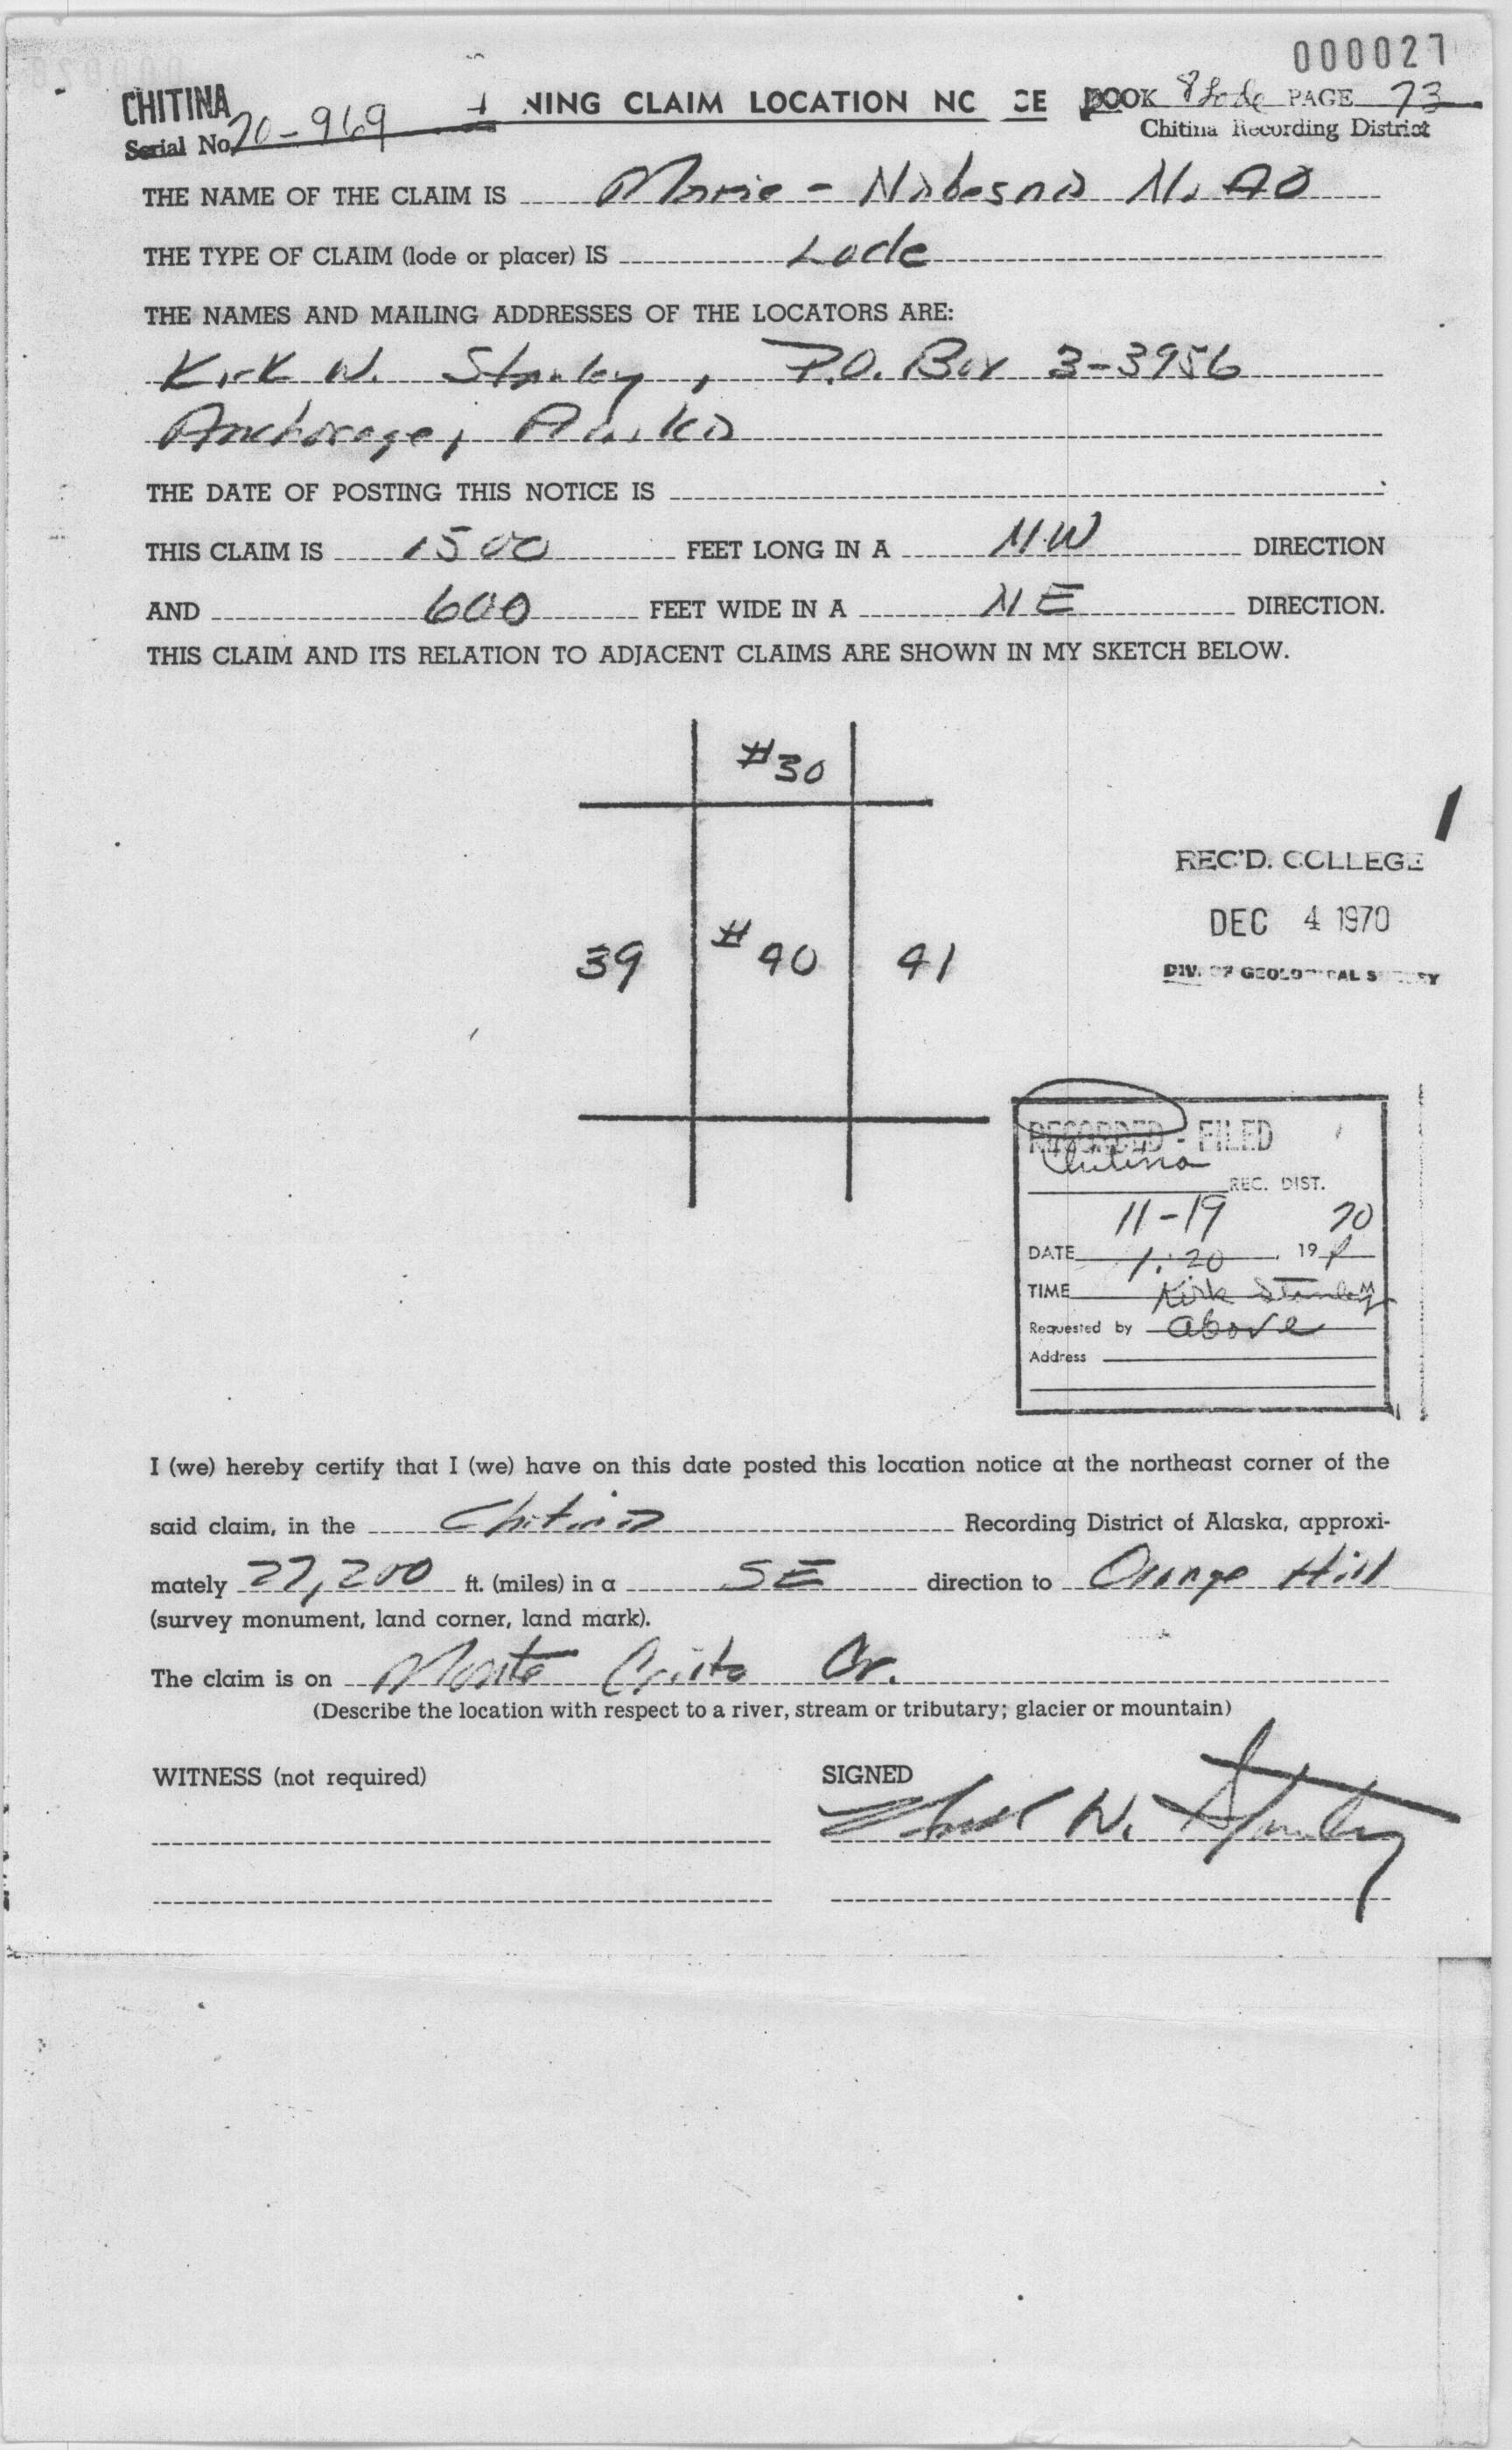 000027
CHITINA
Serial No. 70-969
NING CLAIM LOCATION NO CE
BOOK 8 Lode PAGE 73
Chitina Recording District
THE NAME OF THE CLAIM IS Marie - Nabesna N. 40
THE TYPE OF CLAIM (lode or placer) IS Lode
THE NAMES AND MAILING ADDRESSES OF THE LOCATORS ARE:
Kirk W. Stanley, P.O. Box 3-3956
Anchorage, Alaska
THE DATE OF POSTING THIS NOTICE IS
THIS CLAIM IS 1500 FEET LONG IN A NW DIRECTION
AND 600 FEET WIDE IN A NE DIRECTION.
THIS CLAIM AND ITS RELATION TO ADJACENT CLAIMS ARE SHOWN IN MY SKETCH BELOW.
#30
39 #40 41
REC'D. COLLEGE
DEC 4 1970
DIV. OF GEOLOGICAL SURVEY
RECORDED - FILED
Chitina
REC. DIST.
DATE 11-19 1970
TIME 1:20 M
Requested by Kirk Stanley
Address above
I (we) hereby certify that I (we) have on this date posted this location notice at the northeast corner of the
said claim, in the Chitina Recording District of Alaska, approxi-
mately 27,200 ft. (miles) in a SE direction to Orange Hill
(survey monument, land corner, land mark).
The claim is on Monte Cristo Cr.
(Describe the location with respect to a river, stream or tributary; glacier or mountain)
WITNESS (not required)
SIGNED
Kirk W. Stanley